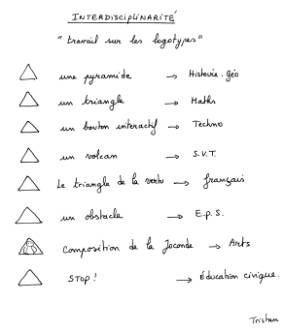 INTERDISCIPLINARITÉ
"travail sur les logotypes"
une pyramide → Histoire.Géo
un triangle → Maths
un bouton interactif → Techno
un volcan → S.V.T.
Le triangle de la vertu → français
un obstacle → E.P.S.
Composition de la Joconde → Arts
STOP! → Éducation civique.
Tristan